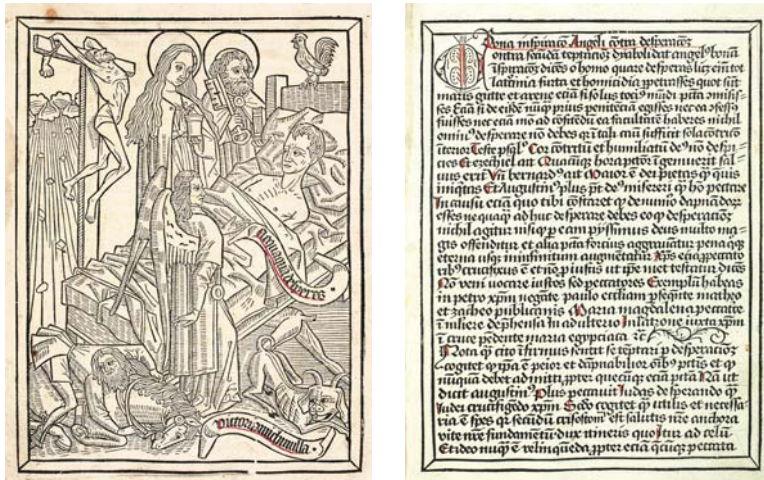 Nequaquam desperes
victoria michi nulla
Bona inspiracō Angeli cōtra desperacōȝ
ontra secūdā tēptacionē dyaboli dat angelꝰ bonā
īspiracōȝ dicēs o homo quare desperas licȝ eīm tot
latrocinia furta et homicidia ꝑpetrasses quot sunt
maris gutte et arene eciā si solus tociꝰ mūdi pctā ꝯmisis-
ses Eciā si de eisdē nūqꝫ prius penitēciā egisses nec ea ꝯfessꝰ
fuisses nec eciā mō ad ꝯfitēdū ea facultatē haberes nichil
ominꝰ desperare nō debes quia in tali casu sufficit sola cōtricio
īterior Teste psalꝰ Cor cōtritū et humiliatū deꝰ nō despi-
cies Et ezechiel ait Quacūqꝫ hora pctor īgemuerit sal-
uus erit Vn̄ bernardꝰ ait Maior ē dei pietas qꝫ queuis
iniquitas Et Augustinꝰ plus pōt deꝰ misereri qꝫ hō peccare
In casu eciam quo tibi cōstaret qꝫ de numō dampnādorꝫ
esses nequaqꝫ ad huc desperare debes eo qꝫ desperacōȝ
nichil agitur nisi qꝫ ꝑ eam pyssimus deus multo ma-
gis offenditur et alia pctā forcius aggrauātur pena qꝫ
eterna usqꝫ in infinitum augmētatur Xp̄s eciā ꝓ peccato
ribꝰ crucifixus ē et nō ꝓ iustis ut ip̄e met testatur dicēs
Nō veni uocare iustos sed peccatores Exemplū habeas
in petro xp̄m negāte paulo eccliam ꝑseqūte matheo
et zacheo publicanis Maria magdalena peccatrice
ī muliere dep̄hensa in adulterio In latrone iuxta xp̄m
ī cruce pēdente maria egypciaca ꝛc̄
Nota qꝫ cito īfirmus sentit se tēptari ꝑ desperacōȝ
cogitet qꝫ ip̄a ē peior et dāpnabilior oībꝰ pctis et qꝫ
nūquā debet admitti ꝓpter quecūqꝫ eciā pctā Nā ut
dicit augustinꝰ Plus peccauit Iudas desperando qꝫ
Iudei crucifigēdo xp̄m Scd̄o cogitet qꝫ utilis et necessa-
ria ē spes qꝛ secūdū crisostomū est salutis nr̄e anchora
vite nr̄e fundamētū dux itineris quo itur ad celū
Et ideo nūqꝫ ē relinquēda ꝓpter eciā qūcūqꝫ peccata